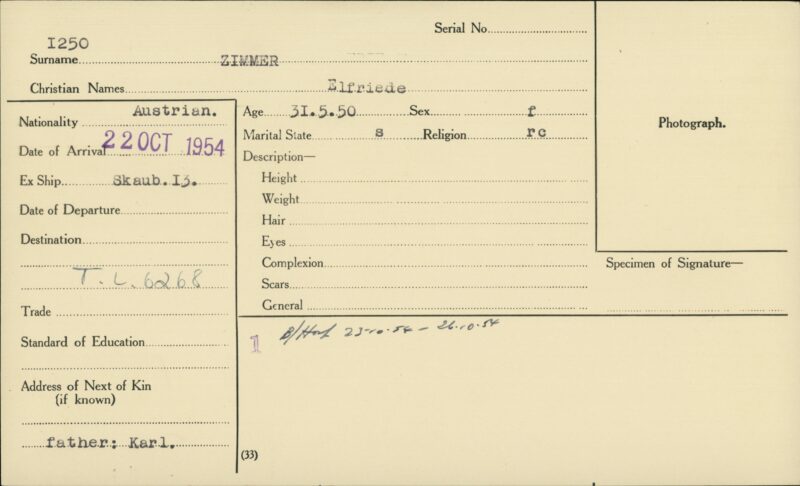 Serial No.
I250
Surname ZIMMER
Christian Names Elfriede
Nationality Austrian.
Date of Arrival 22 OCT 1954
Ex Ship Skaub. I3.
Date of Departure
Destination
T. L. 6268
Trade
Standard of Education
Address of Next of Kin
(if known)
father: Karl.
Age 3I.5.50 Sex f
Marital State s Religion rc
Description—
Height
Weight
Hair
Eyes
Complexion
Scars
General
Photograph.
Specimen of Signature—
1 B/Hosp 23-10-54 – 26-10-54
(33)